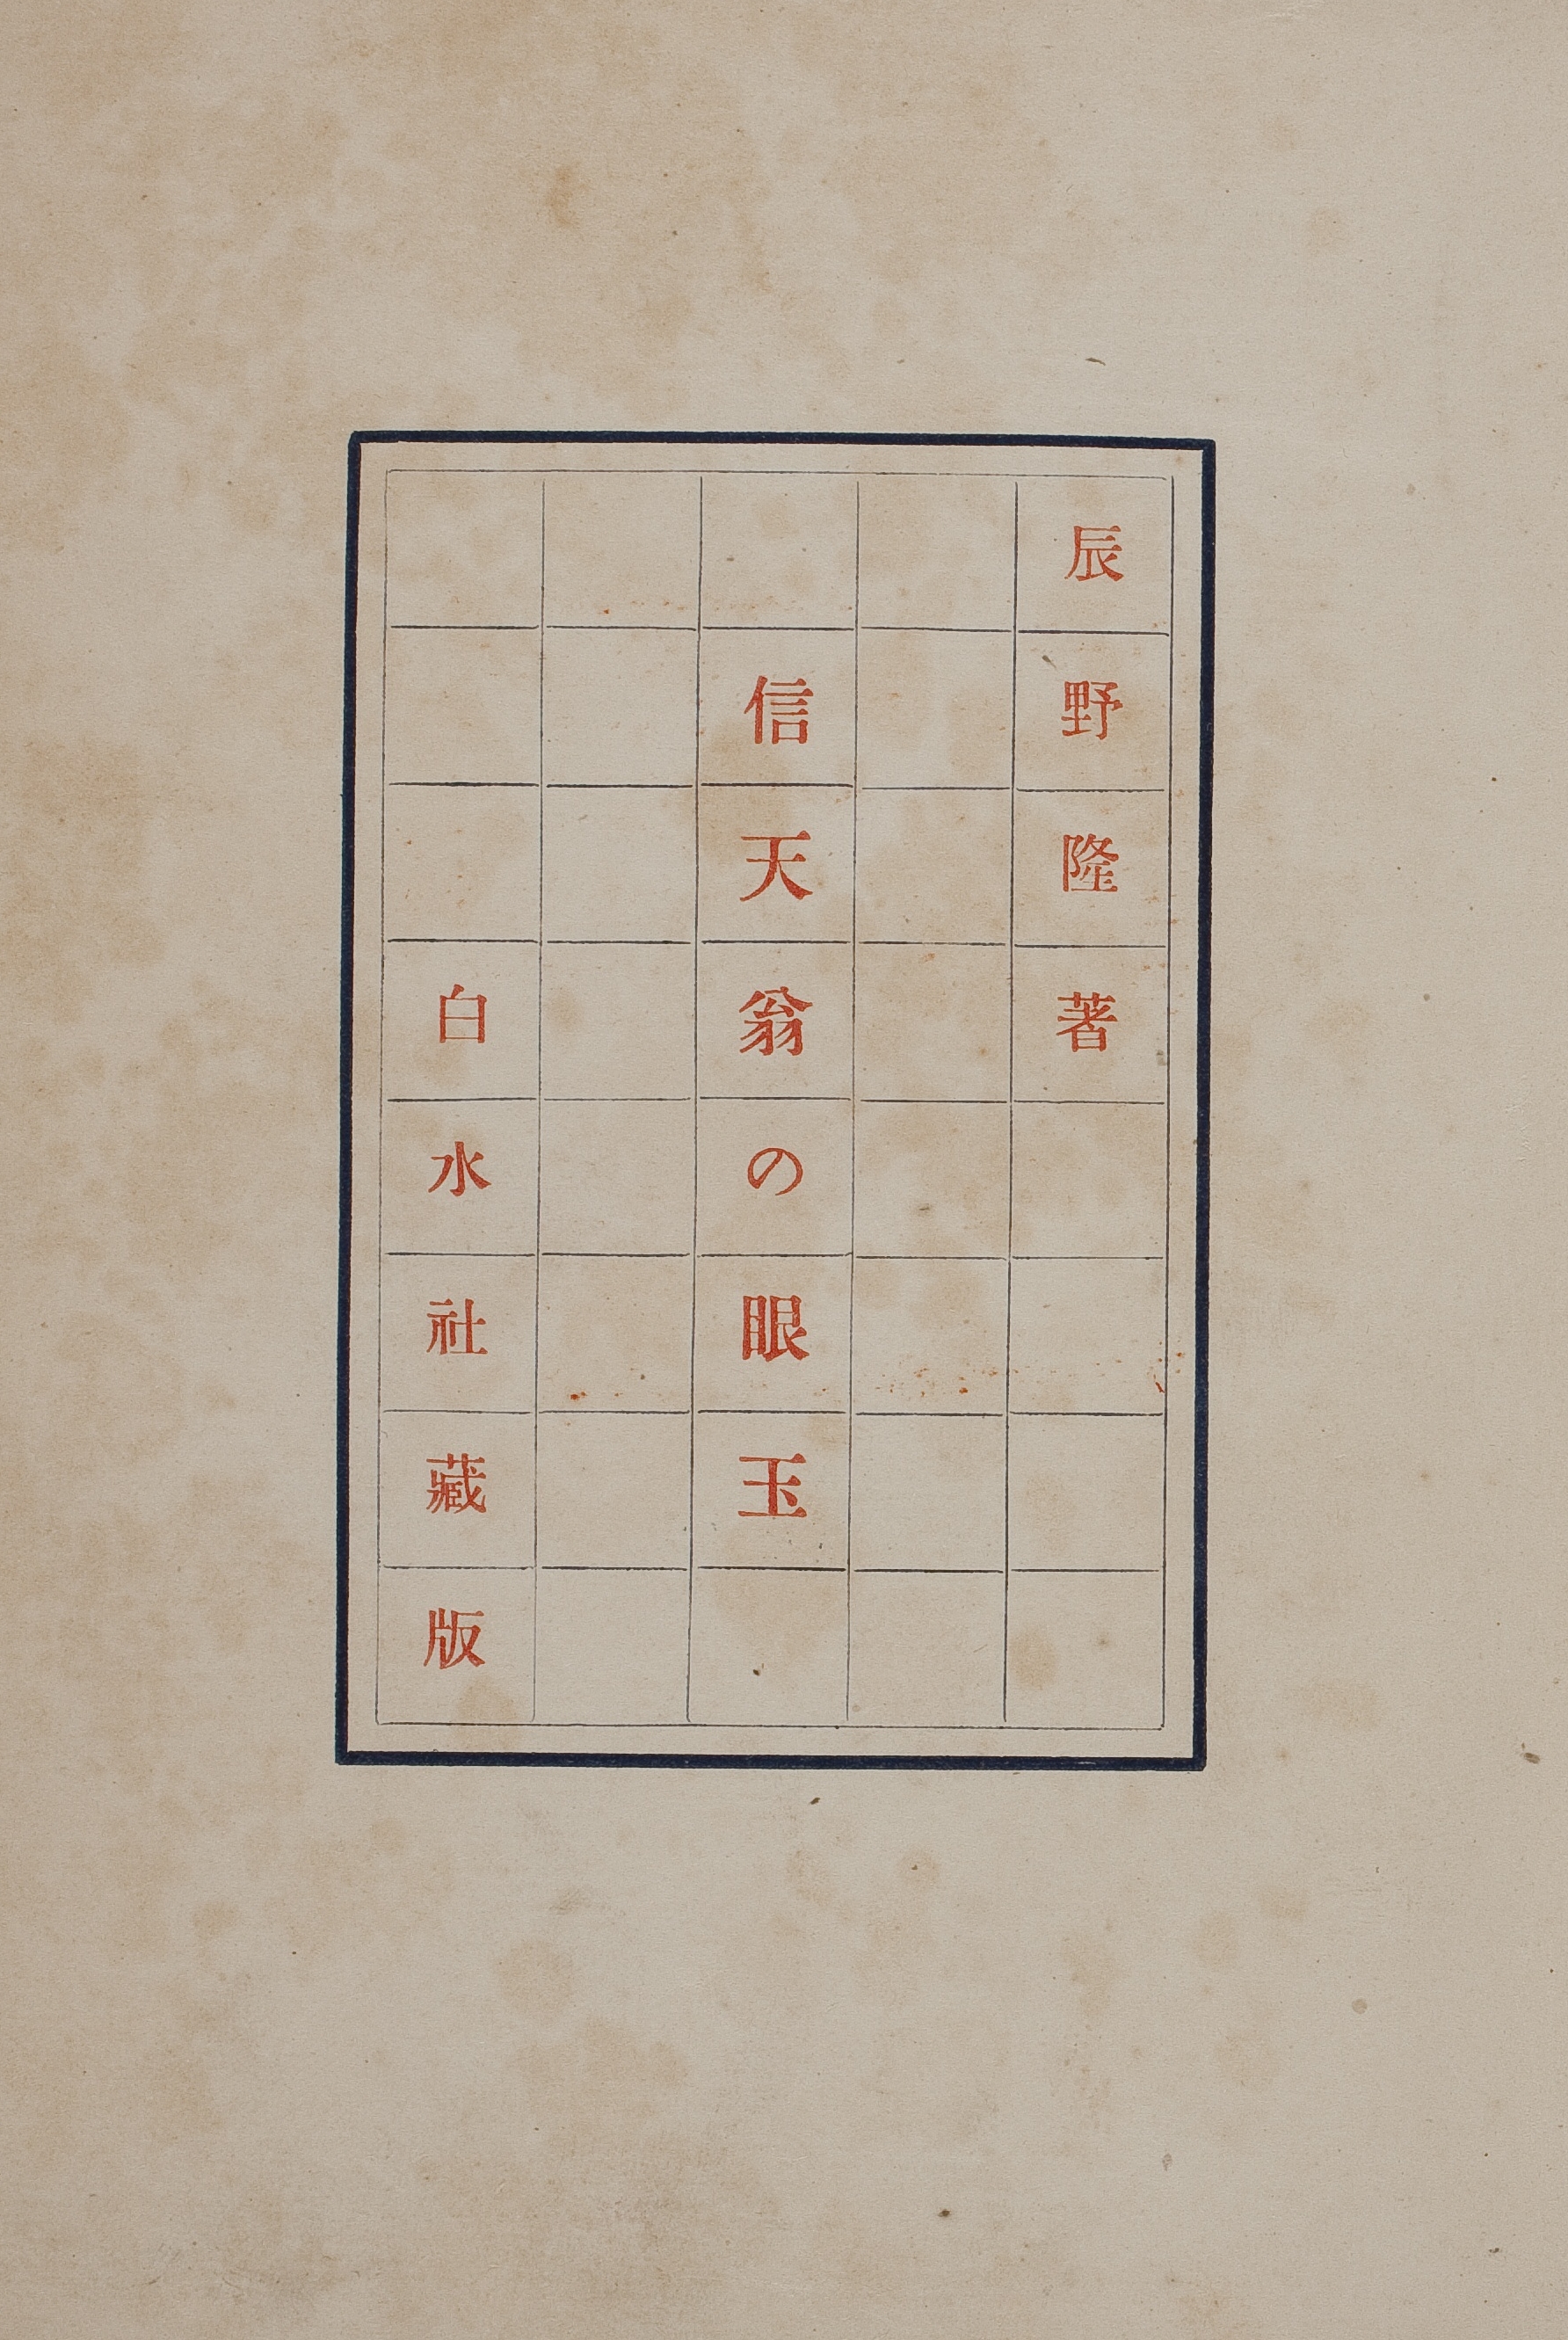 辰野隆著
信天翁の眼玉
白水社藏版